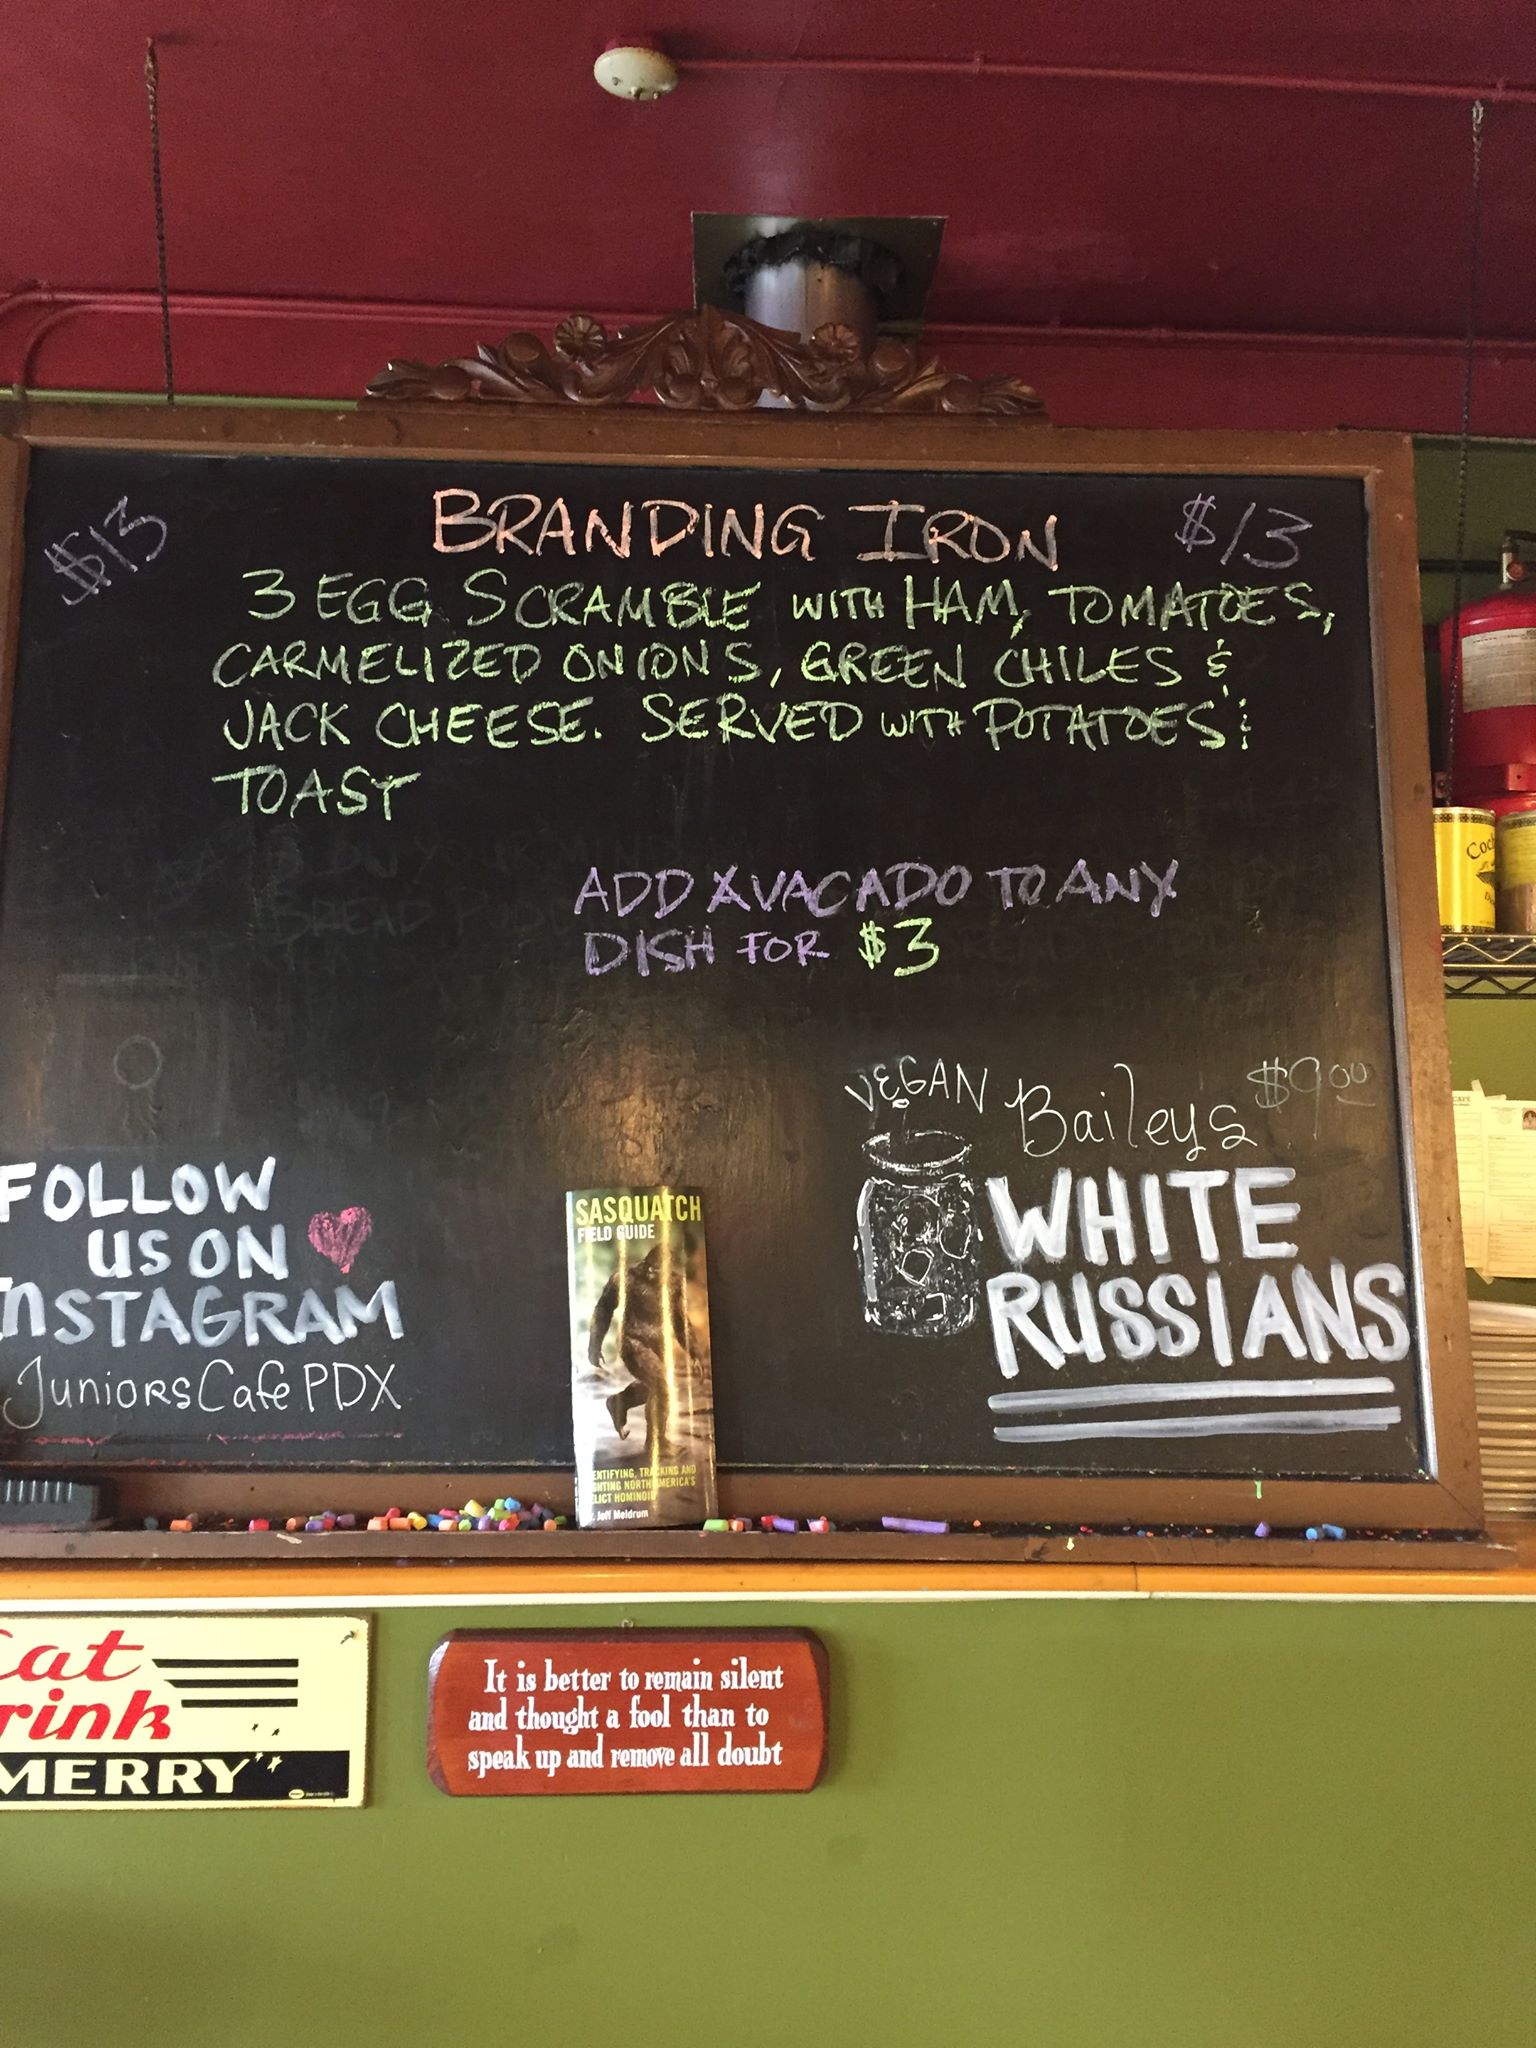 $13 BRANDING IRON $13
3 EGG SCRAMBLE WITH HAM, TOMATOES,
CARMELIZED ONIONS, GREEN CHILES &
JACK CHEESE. SERVED WITH POTATOES &
TOAST
ADD AVACADO TO ANY
DISH FOR $3
VEGAN Baileys $9.00
WHITE
RUSSIANS
FOLLOW
US ON
INSTAGRAM
JuniorsCafePDX
SASQUATCH
FIELD GUIDE
ENTIFYING, TRACKING AND
GHTING NORTH AMERICA'S
ELICT HOMINOID
Jeff Meldrum
Eat
rink
MERRY
It is better to remain silent
and thought a fool than to
speak up and remove all doubt